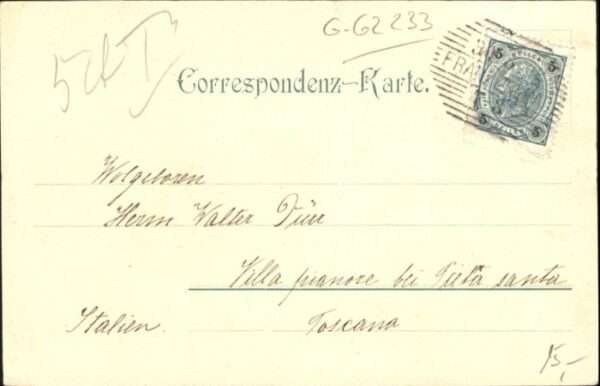 G-G2 233
Correspondenz-Karte.
5 5
FRA
5 5
Wolgeboren
Herrn Walter Dürr
Villa pianore bei Pietà santa
Italien. Toscana
15,-